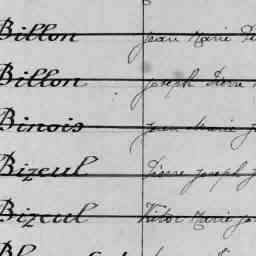 Billon Jean Marie
Billon Joseph Pierre
Binois Jean Marie
Bizeul Pierre Joseph
Bizeul Victor Marie